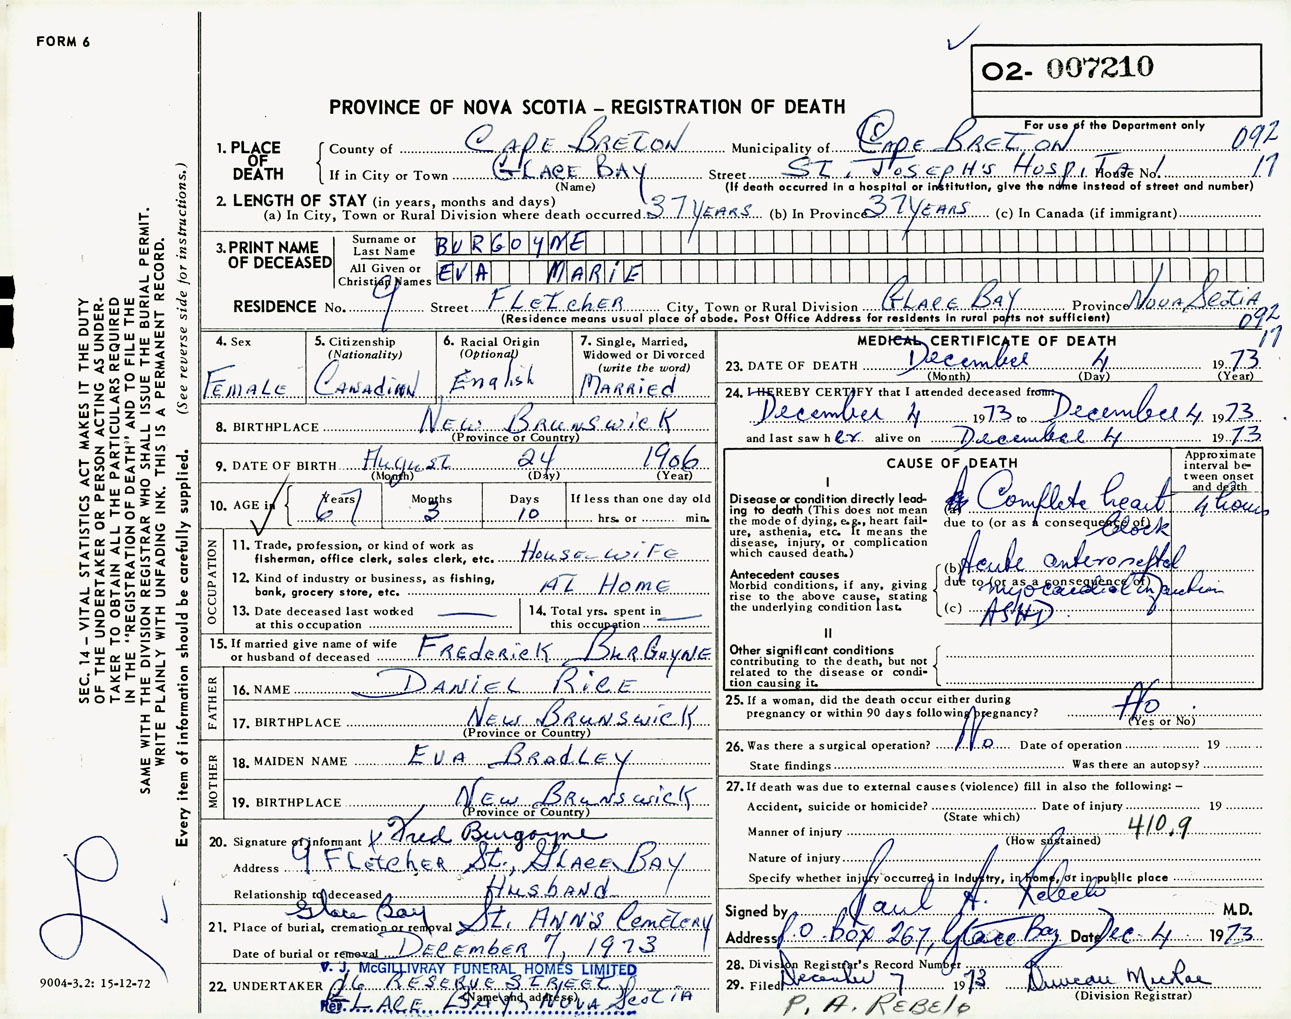 FORM 6
O2- 007210
For use of the Department only
PROVINCE OF NOVA SCOTIA – REGISTRATION OF DEATH
092
17
1. PLACE OF DEATH
County of CAPE BRETON Municipality of CAPE BRETON
If in City or Town GLACE BAY Street ST. JOSEPH'S HOSPITAL House No.
(Name) (If death occurred in a hospital or institution, give the name instead of street and number)
2. LENGTH OF STAY (in years, months and days)
(a) In City, Town or Rural Division where death occurred 37 YEARS (b) In Province 37 YEARS (c) In Canada (if immigrant)
3. PRINT NAME OF DECEASED
Surname or Last Name BURGOYNE
All Given or Christian Names EVA MARIE
RESIDENCE No. 9 Street FLETCHER City, Town or Rural Division GLACE BAY Province NOVA SCOTIA
(Residence means usual place of abode. Post Office Address for residents in rural parts not sufficient)
092
17
4. Sex
FEMALE
5. Citizenship
(Nationality)
CANADIAN
6. Racial Origin
(Optional)
English
7. Single, Married,
Widowed or Divorced
(write the word)
MARRIED
8. BIRTHPLACE NEW BRUNSWICK
(Province or Country)
9. DATE OF BIRTH August 24 1906
(Month) (Day) (Year)
10. AGE in
Years 67
Months 3
Days 10
If less than one day old
hrs. or min.
OCCUPATION
11. Trade, profession, or kind of work as
fisherman, office clerk, sales clerk, etc. HOUSEWIFE
12. Kind of industry or business, as fishing,
bank, grocery store, etc. AT HOME
13. Date deceased last worked
at this occupation
14. Total yrs. spent in
this occupation
15. If married give name of wife
or husband of deceased FREDERICK BURGOYNE
FATHER
16. NAME DANIEL RICE
17. BIRTHPLACE NEW BRUNSWICK
(Province or Country)
MOTHER
18. MAIDEN NAME EVA BRADLEY
19. BIRTHPLACE NEW BRUNSWICK
(Province or Country)
20. Signature of informant X Fred Burgoyne
Address 9 FLETCHER ST., GLACE BAY
Relationship to deceased HUSBAND
Glace Bay
21. Place of burial, cremation or removal ST. ANN'S CEMETERY
Date of burial or removal DECEMBER 7, 1973
V. J. McGILLIVRAY FUNERAL HOMES LIMITED
22. UNDERTAKER 16 RESERVE STREET
(Name and address)
Per GLACE BAY, NOVA SCOTIA
MEDICAL CERTIFICATE OF DEATH
23. DATE OF DEATH December 4 1973
(Month) (Day) (Year)
24. I HEREBY CERTIFY that I attended deceased from
December 4 1973 to December 4 1973
and last saw her alive on December 4 1973
CAUSE OF DEATH
Approximate
interval be-
tween onset
and death
I
Disease or condition directly lead-
ing to death (This does not mean
the mode of dying, e.g., heart fail-
ure, asthenia, etc. It means the
disease, injury, or complication
which caused death.)
Complete heart 4 hours
due to (or as a consequence of)
block
Antecedent causes
Morbid conditions, if any, giving
rise to the above cause, stating
the underlying condition last.
(b) Acute anteroseptal
due to (or as a consequence of)
myocardial infarction
(c) ASHD
II
Other significant conditions
contributing to the death, but not
related to the disease or condi-
tion causing it.
25. If a woman, did the death occur either during
pregnancy or within 90 days following pregnancy? No
(Yes or No)
26. Was there a surgical operation? No Date of operation 19
State findings Was there an autopsy?
27. If death was due to external causes (violence) fill in also the following: –
Accident, suicide or homicide? Date of injury 19
(State which)
Manner of injury 410.9
(How sustained)
Nature of injury
Specify whether injury occurred in industry, in home, or in public place
Signed by Paul A. Rebelo M.D.
Address P.O. Box 267, Glace Bay Date Dec. 4 1973
28. Division Registrar's Record Number
29. Filed December 7 1973 Duncan MacRae
(Division Registrar)
P. A. REBELO
SEC. 14 – VITAL STATISTICS ACT MAKES IT THE DUTY
OF THE UNDERTAKER OR PERSON ACTING AS UNDER-
TAKER TO OBTAIN ALL THE PARTICULARS REQUIRED
IN THE "REGISTRATION OF DEATH" AND TO FILE THE
SAME WITH THE DIVISION REGISTRAR WHO SHALL ISSUE THE BURIAL PERMIT.
WRITE PLAINLY WITH UNFADING INK. THIS IS A PERMANENT RECORD.
Every item of information should be carefully supplied. (See reverse side for instructions.)
9004-3.2: 15-12-72